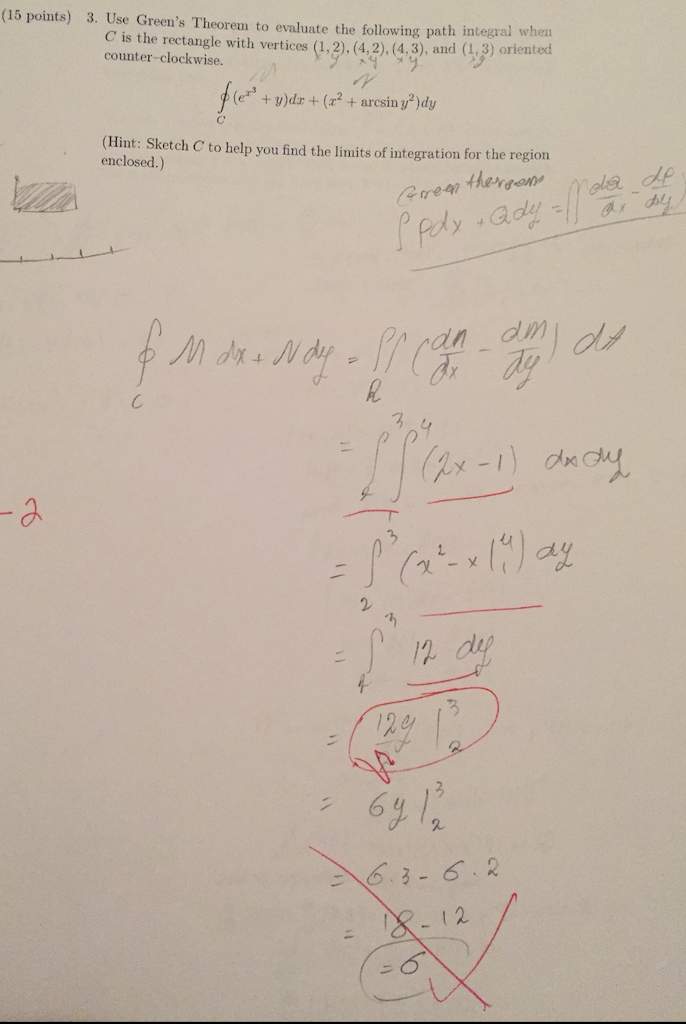 (15 points) 3. Use Green's Theorem to evaluate the following path integral when
C is the rectangle with vertices (1, 2), (4, 2), (4, 3), and (1, 3) oriented
counter-clockwise.
x y x y x y x y
M N
∮_C (e^{x^3} + y)dx + (x^2 + arcsin y^2)dy
(Hint: Sketch C to help you find the limits of integration for the region
enclosed.)
Green theroem
∫ Pdx + Qdy = ∬ dQ/dx - dP/dy
∮_C M dx + N dy = ∬_R (dn/dx - dm/dy) dA
= ∫_2^3 ∫_1^4 (2x - 1) dx dy
-2
= ∫_2^3 (x^2 - x |_1^4) dy
= ∫_2^3 12 dy
= 12y |_2^3
= 6y |_2^3
= 6.3 - 6.2
= 18 - 12
= 6